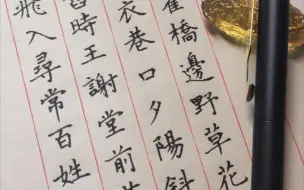 雀橋邊野草花
衣巷口夕陽斜
舊時王謝堂前
飛入尋常百姓